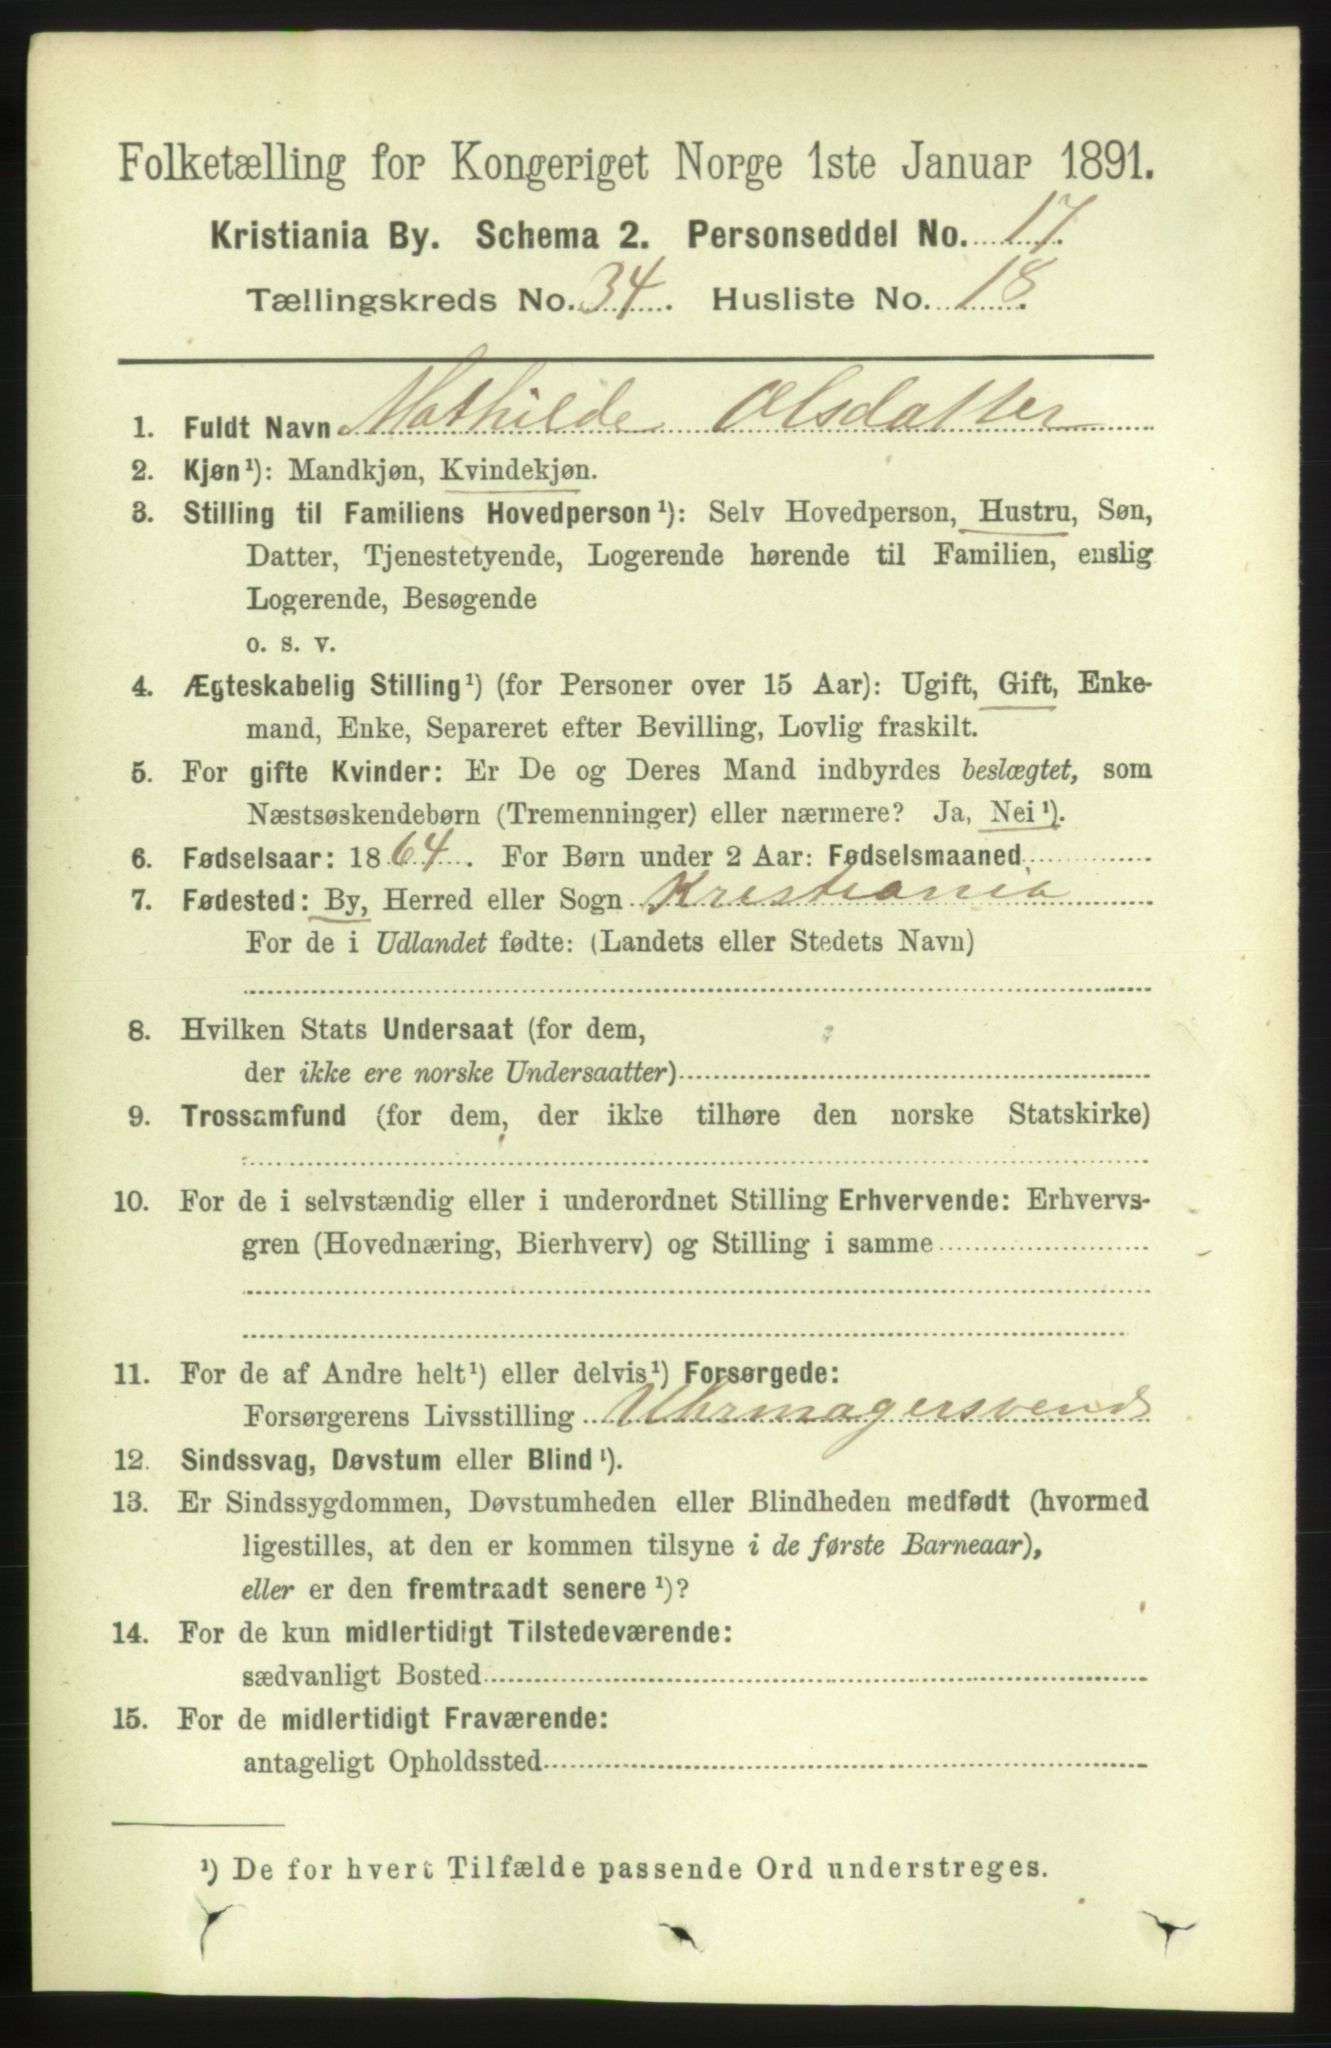 Folketælling for Kongeriget Norge 1ste Januar 1891.
Kristiania By. Schema 2. Personseddel No. 17.
Tællingskreds No. 34. Husliste No. 18.
1. Fuldt Navn Mathilde Olsdatter
2. Kjøn¹): Mandkjøn, Kvindekjøn.
3. Stilling til Familiens Hovedperson¹): Selv Hovedperson, Hustru, Søn,
Datter, Tjenestetyende, Logerende hørende til Familien, enslig
Logerende, Besøgende
o. s. v.
4. Ægteskabelig Stilling¹) (for Personer over 15 Aar): Ugift, Gift, Enke-
mand, Enke, Separeret efter Bevilling, Lovlig fraskilt.
5. For gifte Kvinder: Er De og Deres Mand indbyrdes beslægtet, som
Næstsøskendebørn (Tremenninger) eller nærmere? Ja, Nei¹).
6. Fødselsaar: 1864. For Børn under 2 Aar: Fødselsmaaned
7. Fødested: By, Herred eller Sogn Kristiania
For de i Udlandet fødte: (Landets eller Stedets Navn)
8. Hvilken Stats Undersaat (for dem,
der ikke ere norske Undersaatter)
9. Trossamfund (for dem, der ikke tilhøre den norske Statskirke)
10. For de i selvstændig eller i underordnet Stilling Erhvervende: Erhvervs-
gren (Hovednæring, Bierhverv) og Stilling i samme
11. For de af Andre helt¹) eller delvis¹) Forsørgede:
Forsørgerens Livsstilling Uhrmagersvend
12. Sindssvag, Døvstum eller Blind¹).
13. Er Sindssygdommen, Døvstumheden eller Blindheden medfødt (hvormed
ligestilles, at den er kommen tilsyne i de første Barneaar),
eller er den fremtraadt senere¹)?
14. For de kun midlertidigt Tilstedeværende:
sædvanligt Bosted
15. For de midlertidigt Fraværende:
antageligt Opholdssted
¹) De for hvert Tilfælde passende Ord understreges.